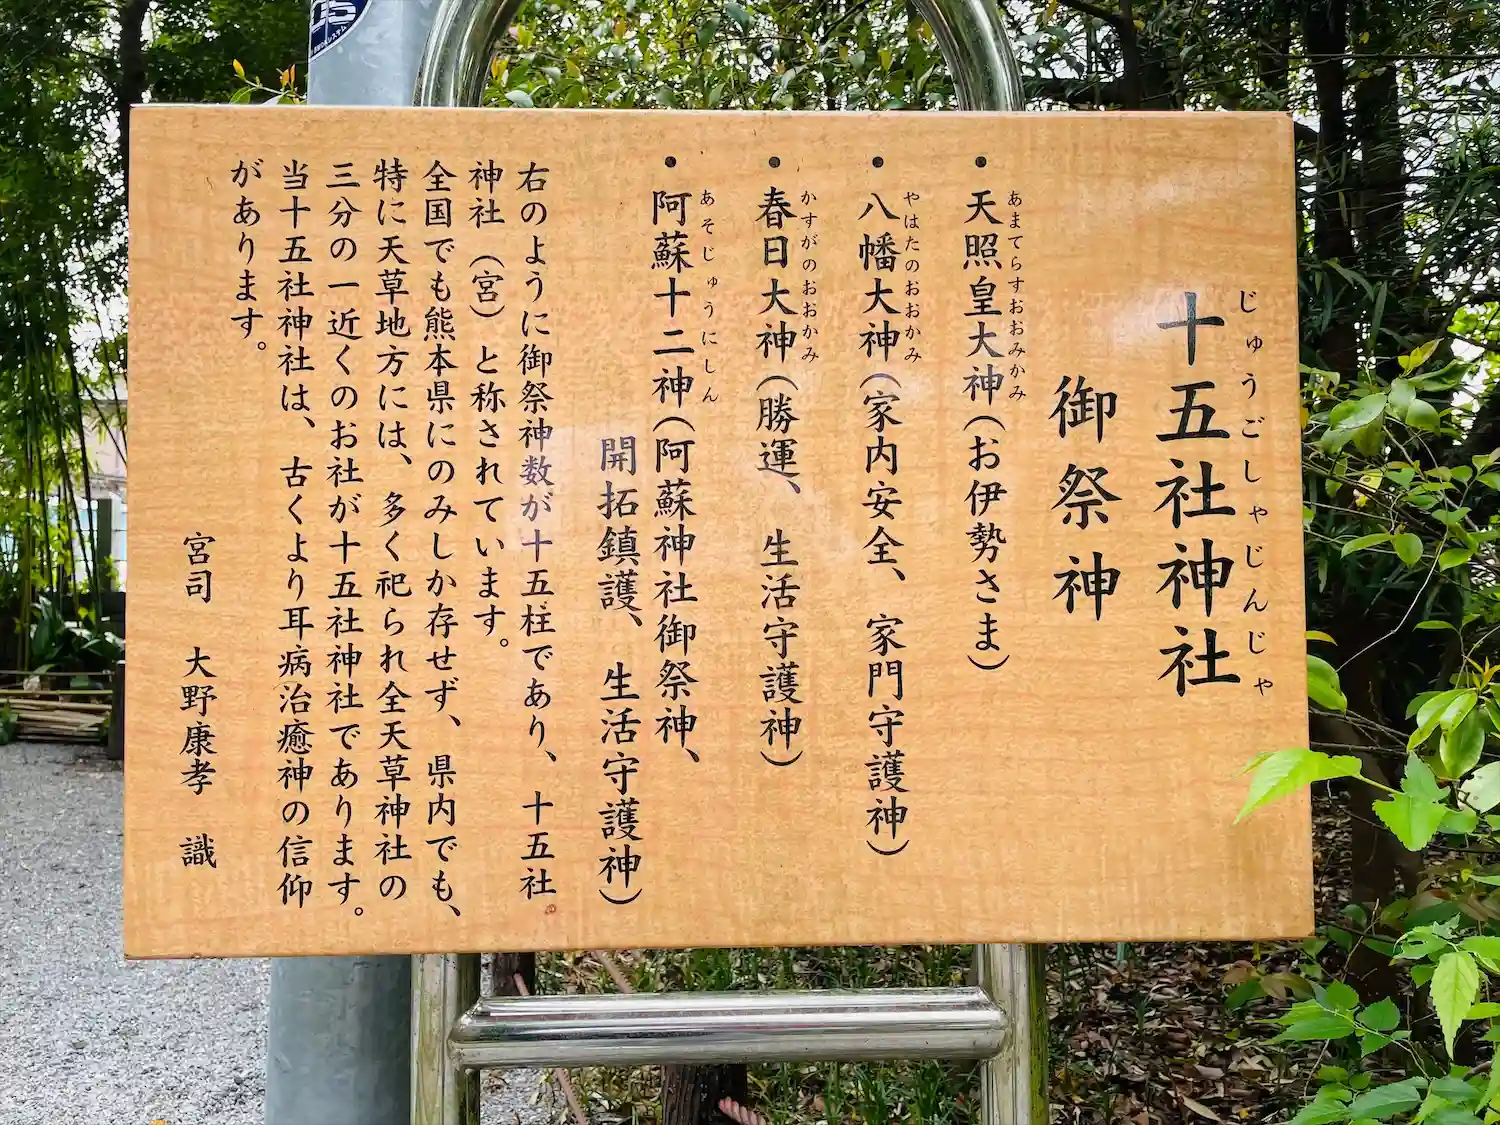 十五社神社
じゅうごしゃじんじゃ
御祭神
・天照皇大神（お伊勢さま）
あまてらすおおみかみ
・八幡大神（家内安全、家門守護神）
やはたのおおかみ
・春日大神（勝運、生活守護神）
かすがのおおかみ
・阿蘇十二神（阿蘇神社御祭神、
あそじゅうにしん
開拓鎮護、生活守護神）
右のように御祭神数が十五柱であり、十五社
神社（宮）と称されています。
全国でも熊本県にのみしか存せず、県内でも、
特に天草地方には、多く祀られ全天草神社の
三分の一近くのお社が十五社神社であります。
当十五社神社は、古くより耳病治癒神の信仰
があります。
宮司 大野康孝 識